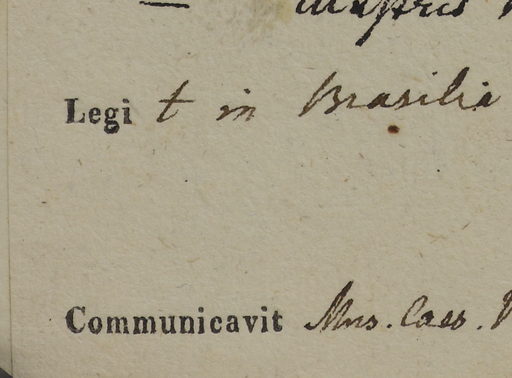 Legi t in Brasilia
Communicavit Mus. Caes.